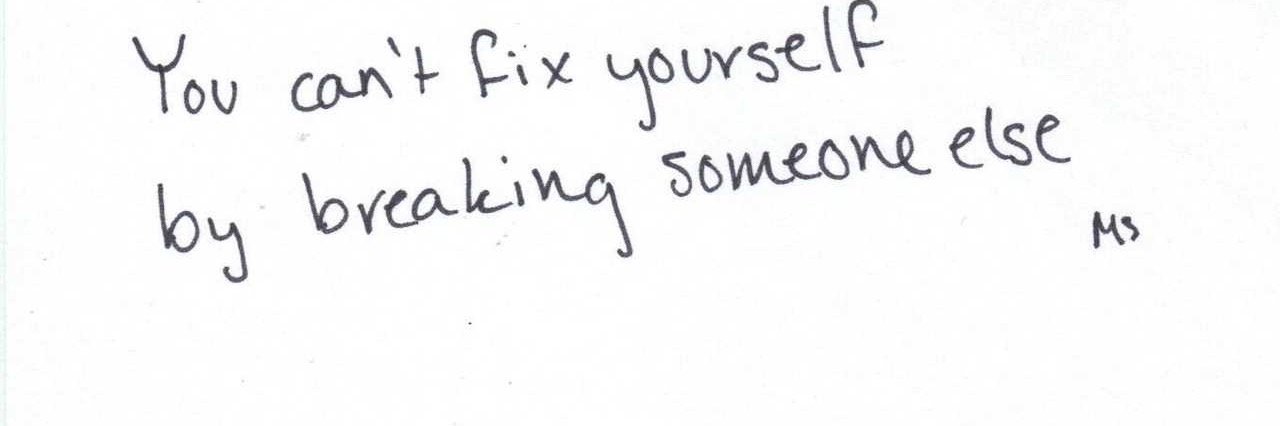 You can't fix yourself
by breaking someone else
MS